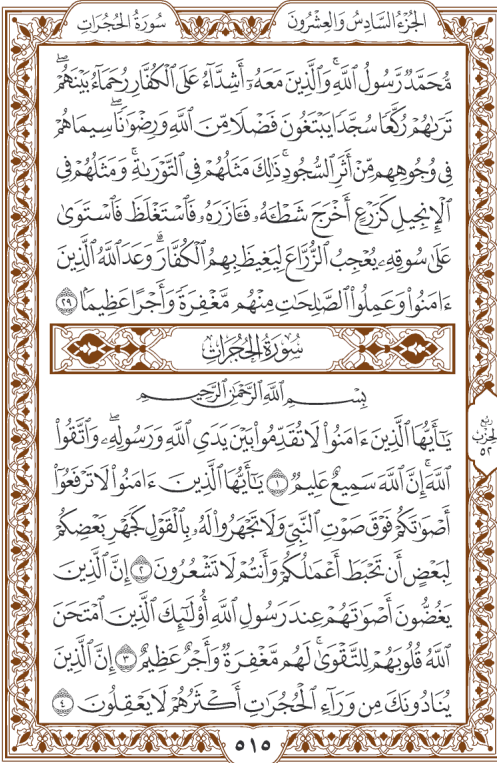 سُورَةُ الحُجُرَاتِ الجُزْءُ السَّادِسُ وَالعِشْرُونَ
مُّحَمَّدٌ رَّسُولُ ٱللَّهِۚ وَٱلَّذِينَ مَعَهُۥٓ أَشِدَّآءُ عَلَى ٱلْكُفَّارِ رُحَمَآءُ بَيْنَهُمْۖ
تَرَىٰهُمْ رُكَّعًا سُجَّدًا يَبْتَغُونَ فَضْلًا مِّنَ ٱللَّهِ وَرِضْوَٰنًاۖ سِيمَاهُمْ
فِى وُجُوهِهِم مِّنْ أَثَرِ ٱلسُّجُودِۚ ذَٰلِكَ مَثَلُهُمْ فِى ٱلتَّوْرَىٰةِۚ وَمَثَلُهُمْ فِى
ٱلْإِنجِيلِ كَزَرْعٍ أَخْرَجَ شَطْـَٔهُۥ فَـَٔازَرَهُۥ فَٱسْتَغْلَظَ فَٱسْتَوَىٰ
عَلَىٰ سُوقِهِۦ يُعْجِبُ ٱلزُّرَّاعَ لِيَغِيظَ بِهِمُ ٱلْكُفَّارَۗ وَعَدَ ٱللَّهُ ٱلَّذِينَ
ءَامَنُوا۟ وَعَمِلُوا۟ ٱلصَّٰلِحَٰتِ مِنْهُم مَّغْفِرَةً وَأَجْرًا عَظِيمًۢا ٢٩
سُورَةُ الحُجُرَاتِ
بِسْمِ ٱللَّهِ ٱلرَّحْمَٰنِ ٱلرَّحِيمِ
يَٰٓأَيُّهَا ٱلَّذِينَ ءَامَنُوا۟ لَا تُقَدِّمُوا۟ بَيْنَ يَدَىِ ٱللَّهِ وَرَسُولِهِۦۖ وَٱتَّقُوا۟
ٱللَّهَۚ إِنَّ ٱللَّهَ سَمِيعٌ عَلِيمٌ ١ يَٰٓأَيُّهَا ٱلَّذِينَ ءَامَنُوا۟ لَا تَرْفَعُوٓا۟
أَصْوَٰتَكُمْ فَوْقَ صَوْتِ ٱلنَّبِىِّ وَلَا تَجْهَرُوا۟ لَهُۥ بِٱلْقَوْلِ كَجَهْرِ بَعْضِكُمْ
لِبَعْضٍ أَن تَحْبَطَ أَعْمَٰلُكُمْ وَأَنتُمْ لَا تَشْعُرُونَ ٢ إِنَّ ٱلَّذِينَ
يَغُضُّونَ أَصْوَٰتَهُمْ عِندَ رَسُولِ ٱللَّهِ أُو۟لَٰٓئِكَ ٱلَّذِينَ ٱمْتَحَنَ
ٱللَّهُ قُلُوبَهُمْ لِلتَّقْوَىٰۚ لَهُم مَّغْفِرَةٌ وَأَجْرٌ عَظِيمٌ ٣ إِنَّ ٱلَّذِينَ
يُنَادُونَكَ مِن وَرَآءِ ٱلْحُجُرَٰتِ أَكْثَرُهُمْ لَا يَعْقِلُونَ ٤
رُبع
الحِزْب
٥٢
٥١٥